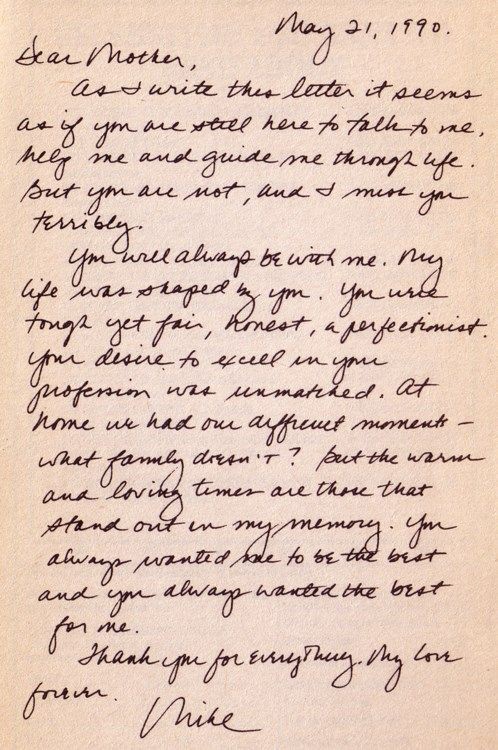 May 21, 1990.
Dear Mother,
As I write this letter it seems
as if you are still here to talk to me,
help me and guide me through life.
But you are not, and I miss you
terribly.
You will always be with me. My
life was shaped by you. You were
tough yet fair, honest, a perfectionist.
Your desire to excell in your
profession was unmatched. At
home we had our difficult moments –
what family doesn't? But the warm
and loving times are those that
stand out in my memory. You
always wanted me to be the best
and you always wanted the best
for me.
Thank you for everything. My love
forever.
Mike